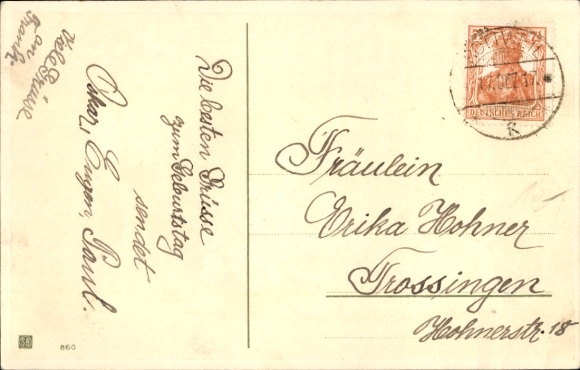 Viele Grüsse
an
Die besten Grüsse
zum Geburtstag
sendet
Oskar, Eugen, Paul.
Fräulein
Erika Hohner
Trossingen
Hohnerstr. 18
DEUTSCHES REICH
860